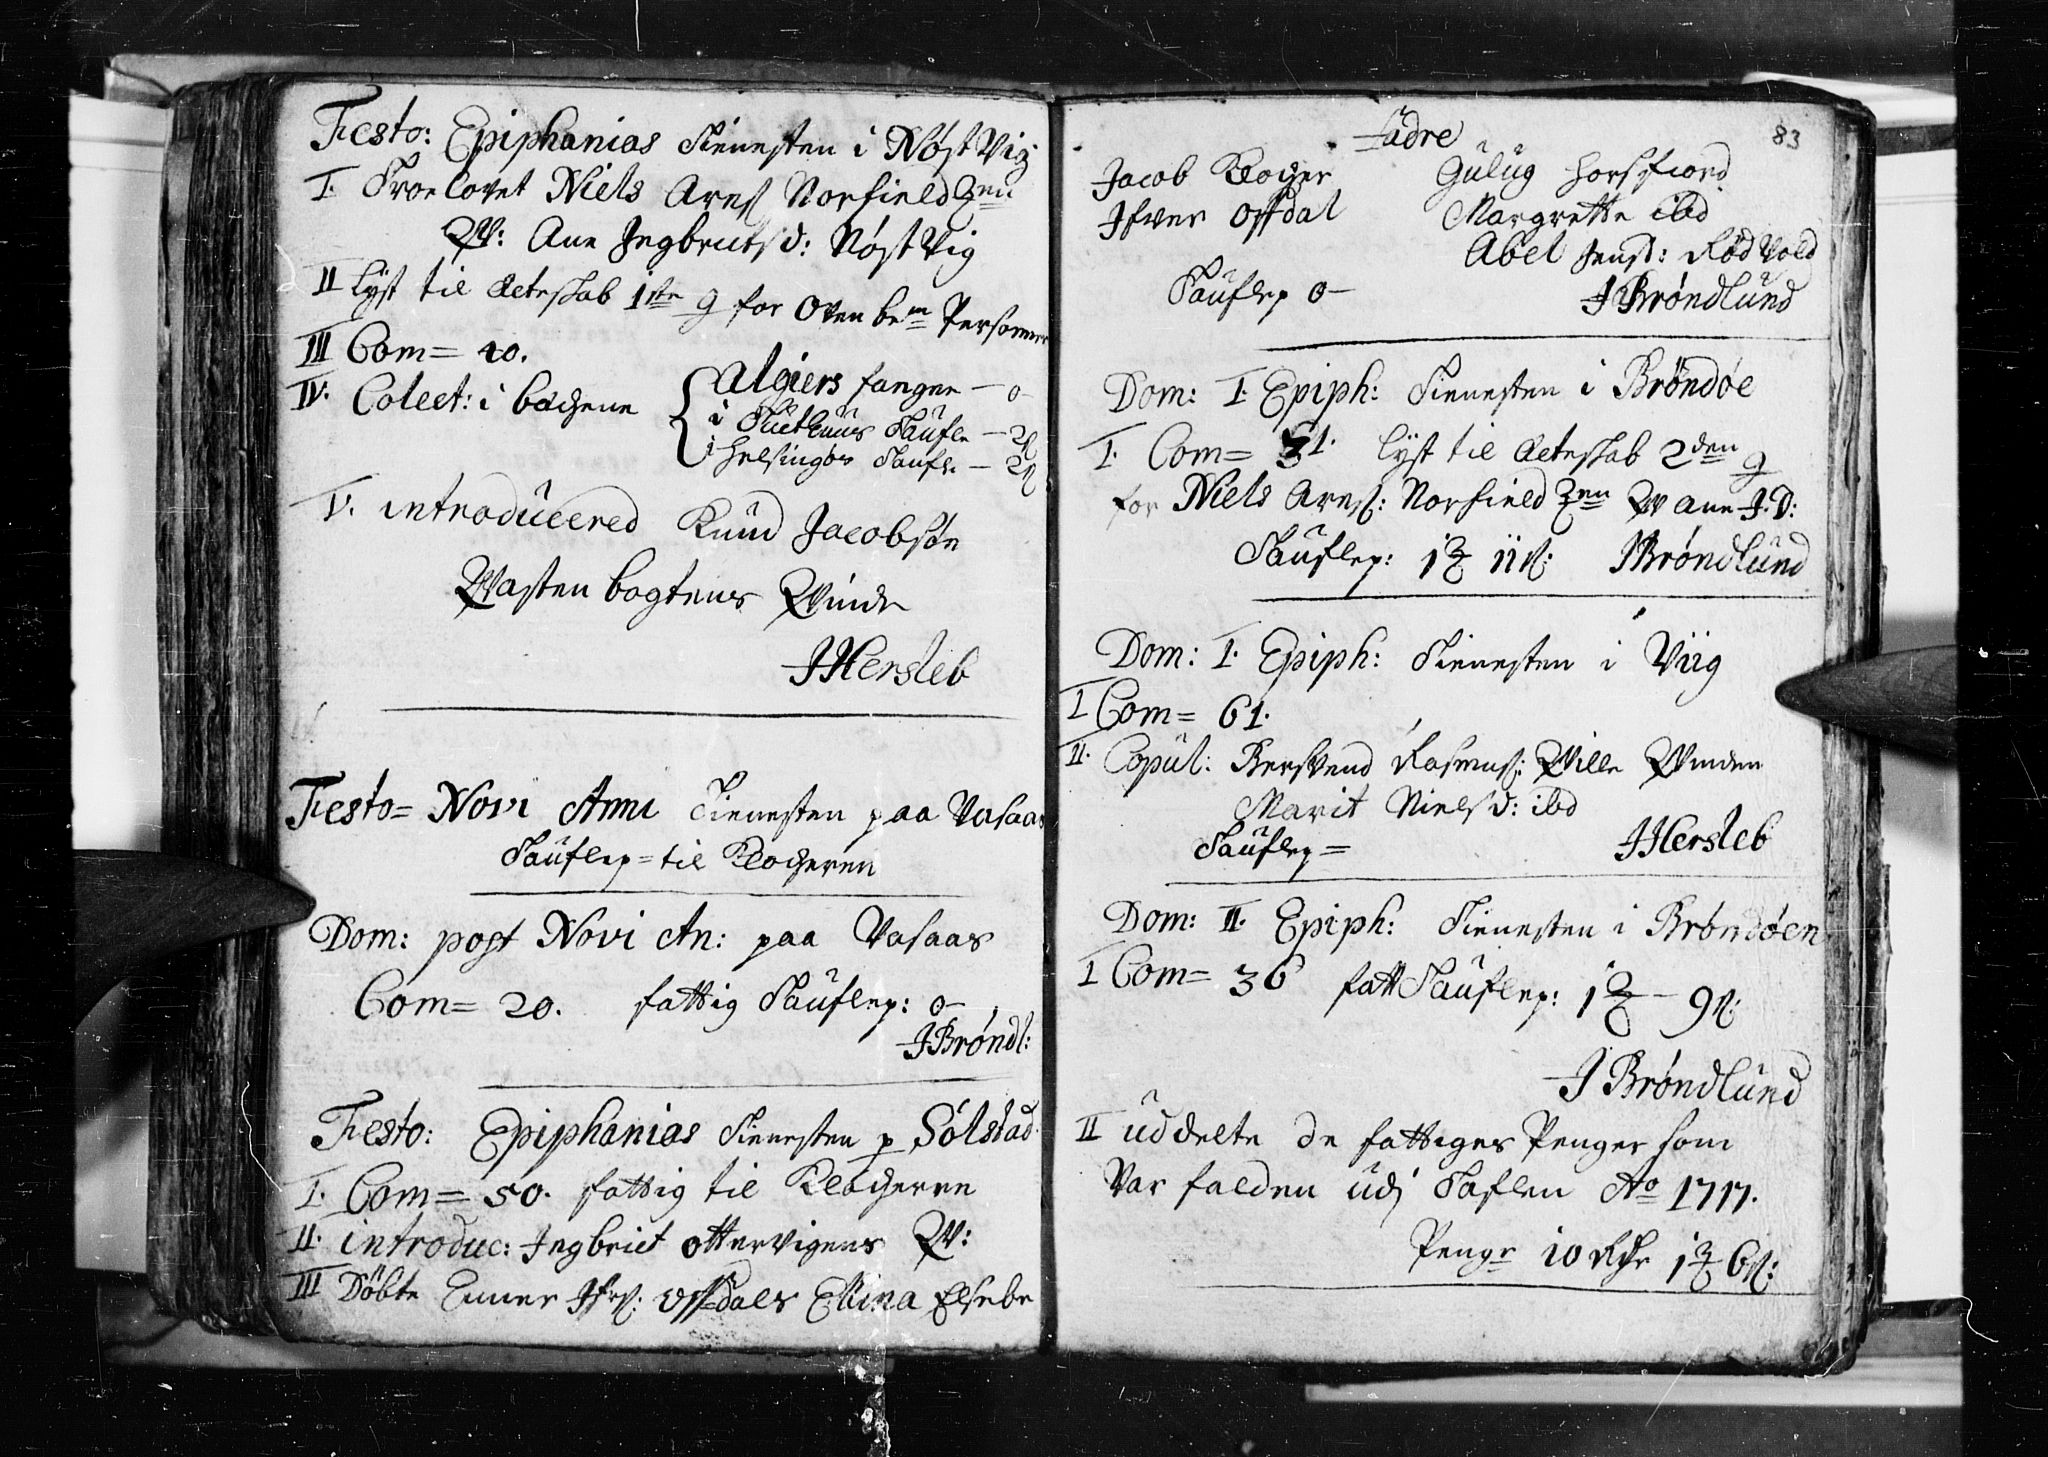 Festo: Epiphanias Tienesten i Nøst Vig
I. Troelovet Niels Arnes Norfield Zen
W: Ane Ingbretsd: Nøst Vig
II lyst til Ecteskab 1ste g for Oven bem Personner
III Com= 10.
IV. Colect: i bechene
Algiers fangne — 0
i Tucthuus Taufle — 2
i Helsingør Taufl: — 2
V. introduceered Knud Jacobsøn
Wasten bogtens Quinde
JHersleb
Festo= Novi Anni Tienesten paa Vasaas
Taufle= til Klocheren
Dom: post Novi An: paa Vasaas
Com= 20. fattig Taufle: 0
JBrøndl:
Festo: Epiphanias Tienesten p Sølstad
I. Com= 50. fattig til Klocheren
II. introduc: Ingbriet Otter Vigens W:
III Døbte Enner Ifrs: Offdals Ellina Elsebe
83
Fadre
Jacob Klocher Gulug Horsfiord
Ifver Offdal Margrette ibd
Abel Jensd: Rød Vold
Tauflep 0— J Brøndlund
Dom: I. Epiph: Tienesten i Brøndøe
I. Com= 31. lyst til Ecteskab 2den g
for Niels Arnes: Norfield Zen W Ane J.D:
Tauflep: 1 11 JBrøndlund
Dom: I. Epiph: Tienesten i Viig
I Com= 61.
II. Copul: BersVend Rasmus: Ville Winden
Marit Nielsd: ibd
Tauflep= JHersleb
Dom: II. Epiph: Tienesten i Brøndøen
I Com= 36 fatt Tauflep: 1 — 9
J Brøndlund
II uddelte de fattiges Penger som
Var falden udj Taflen Ao 1717.
Penge 10 Rdr 1 6